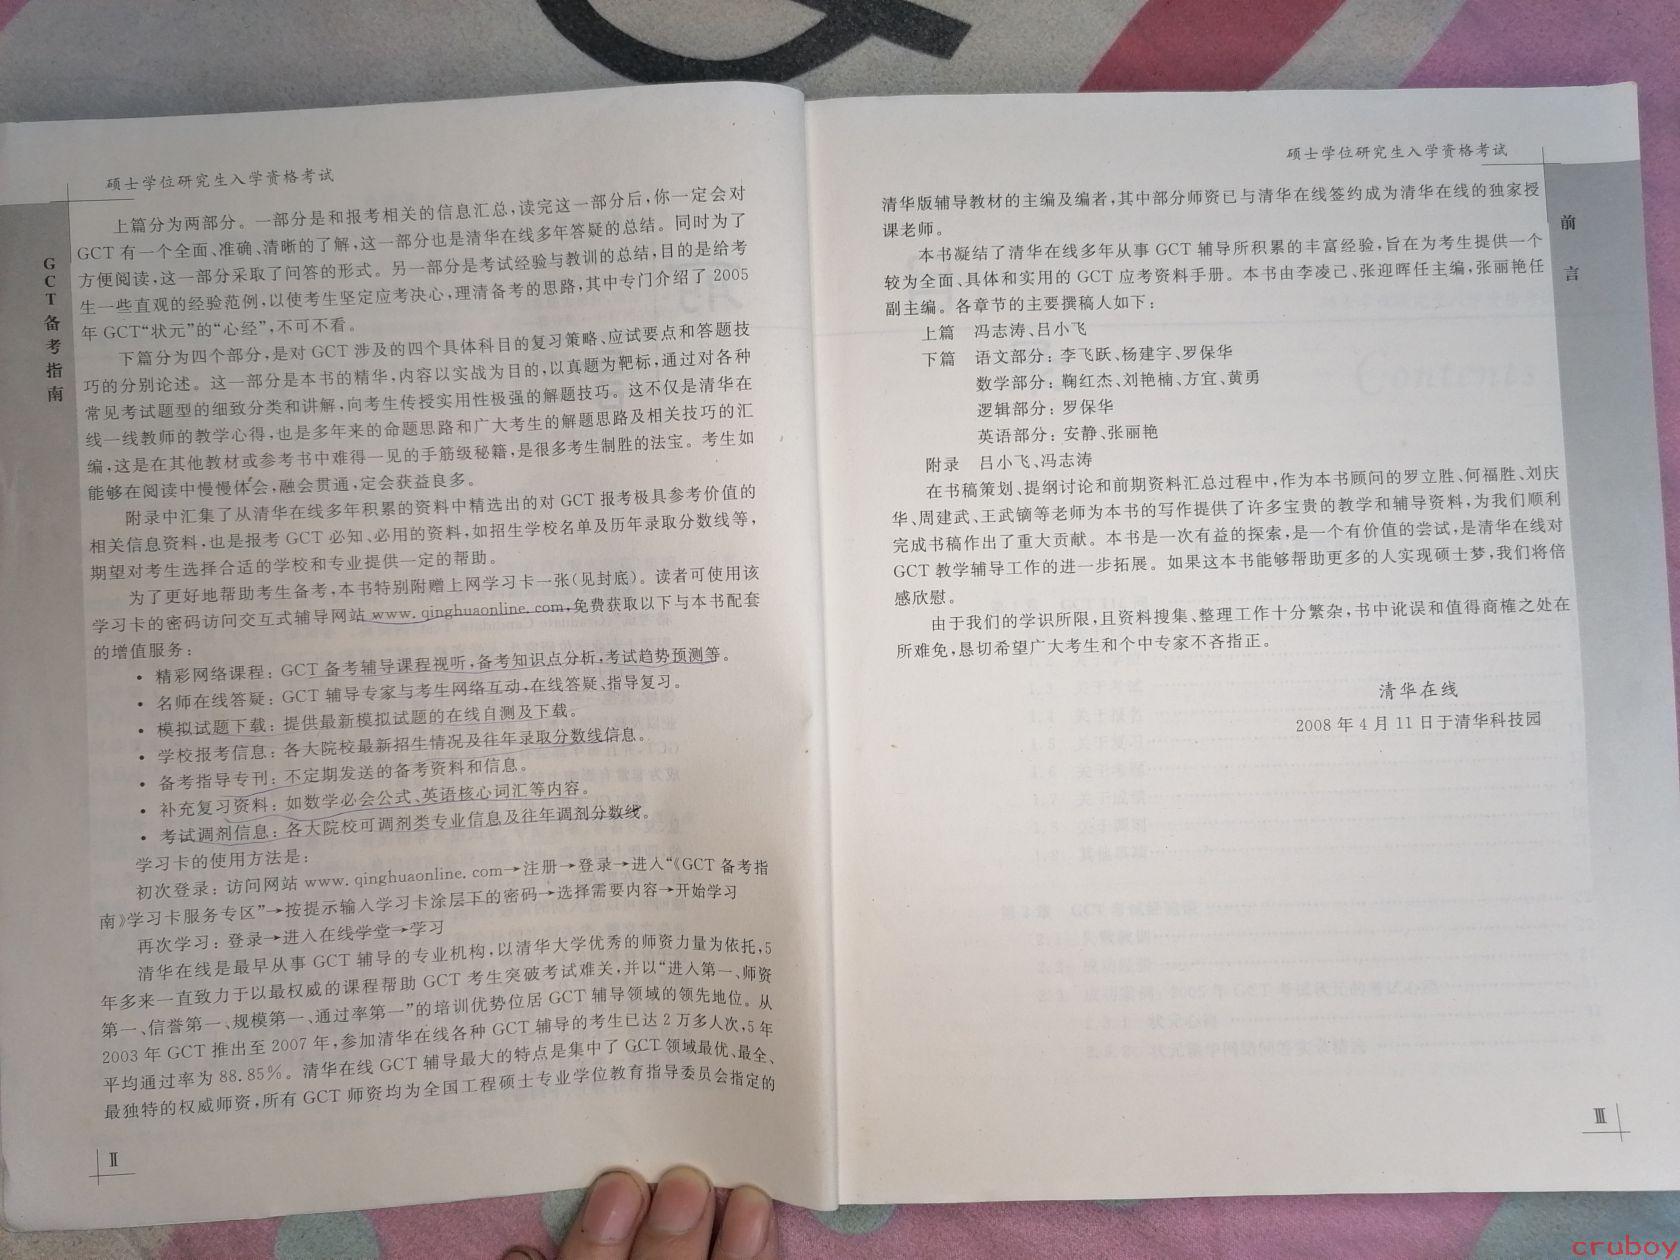 硕士学位研究生入学资格考试
GCT备考指南
上篇分为两部分。一部分是和报考相关的信息汇总,读完这一部分后,你一定会对
GCT 有一个全面、准确、清晰的了解,这一部分也是清华在线多年答疑的总结。同时为了
方便阅读,这一部分采取了问答的形式。另一部分是考试经验与教训的总结,目的是给考
生一些直观的经验范例,以使考生坚定应考决心,理清备考的思路,其中专门介绍了 2005
年 GCT“状元”的“心经”,不可不看。
下篇分为四个部分,是对 GCT 涉及的四个具体科目的复习策略、应试要点和答题技
巧的分别论述。这一部分是本书的精华,内容以实战为目的,以真题为靶标,通过对各种
常见考试题型的细致分类和讲解,向考生传授实用性极强的解题技巧。这不仅是清华在
线一线教师的教学心得,也是多年来的命题思路和广大考生的解题思路及相关技巧的汇
编,这是在其他教材或参考书中难得一见的手筋级秘籍,是很多考生制胜的法宝。考生如
能够在阅读中慢慢体会,融会贯通,定会获益良多。
附录中汇集了从清华在线多年积累的资料中精选出的对 GCT 报考极具参考价值的
相关信息资料,也是报考 GCT 必知、必用的资料,如招生学校名单及历年录取分数线等,
期望对考生选择合适的学校和专业提供一定的帮助。
为了更好地帮助考生备考,本书特别附赠上网学习卡一张(见封底)。读者可使用该
学习卡的密码访问交互式辅导网站 www.qinghuaonline.com,免费获取以下与本书配套
的增值服务:
• 精彩网络课程: GCT 备考辅导课程视听,备考知识点分析,考试趋势预测等。
• 名师在线答疑: GCT 辅导专家与考生网络互动,在线答疑、指导复习。
• 模拟试题下载: 提供最新模拟试题的在线自测及下载。
• 学校报考信息: 各大院校最新招生情况及往年录取分数线信息。
• 备考指导专刊: 不定期发送的备考资料和信息。
• 补充复习资料: 如数学必会公式、英语核心词汇等内容。
• 考试调剂信息: 各大院校可调剂类专业信息及往年调剂分数线。
学习卡的使用方法是:
初次登录: 访问网站 www.qinghuaonline.com→注册→登录→进入“《GCT 备考指
南》学习卡服务专区”→按提示输入学习卡涂层下的密码→选择需要内容→开始学习
再次学习: 登录→进入在线学堂→学习
清华在线是最早从事 GCT 辅导的专业机构,以清华大学优秀的师资力量为依托,5
年多来一直致力于以最权威的课程帮助 GCT 考生突破考试难关,并以“进入第一、师资
第一、信誉第一、规模第一、通过率第一”的培训优势位居 GCT 辅导领域的领先地位。从
2003 年 GCT 推出至 2007 年,参加清华在线各种 GCT 辅导的考生已达 2 万多人次,5 年
平均通过率为 88.85%。清华在线 GCT 辅导最大的特点是集中了 GCT 领域最优、最全、
最独特的权威师资,所有 GCT 师资均为全国工程硕士专业学位教育指导委员会指定的
Ⅱ
硕士学位研究生入学资格考试
前言
清华版辅导教材的主编及编者,其中部分师资已与清华在线签约成为清华在线的独家授
课老师。
本书凝结了清华在线多年从事 GCT 辅导所积累的丰富经验,旨在为考生提供一个
较为全面、具体和实用的 GCT 应考资料手册。本书由李凌己、张迎晖任主编,张丽艳任
副主编。各章节的主要撰稿人如下:
上篇 冯志涛、吕小飞
下篇 语文部分: 李飞跃、杨建宇、罗保华
数学部分: 鞠红杰、刘艳楠、方宜、黄勇
逻辑部分: 罗保华
英语部分: 安静、张丽艳
附录 吕小飞、冯志涛
在书稿策划、提纲讨论和前期资料汇总过程中,作为本书顾问的罗立胜、何福胜、刘庆
华、周建武、王武镝等老师为本书的写作提供了许多宝贵的教学和辅导资料,为我们顺利
完成书稿作出了重大贡献。本书是一次有益的探索,是一个有价值的尝试,是清华在线对
GCT 教学辅导工作的进一步拓展。如果这本书能够帮助更多的人实现硕士梦,我们将倍
感欣慰。
由于我们的学识所限,且资料搜集、整理工作十分繁杂,书中讹误和值得商榷之处在
所难免,恳切希望广大考生和个中专家不吝指正。
清华在线
2008 年 4 月 11 日于清华科技园
Ⅲ
cruboy